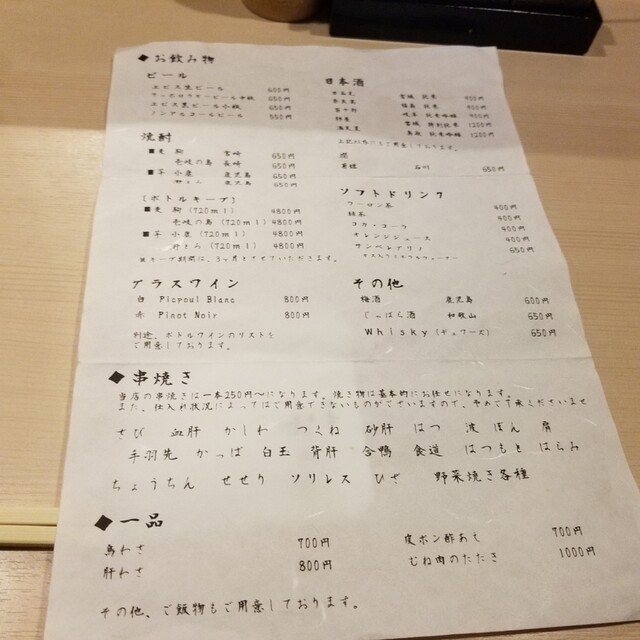 ◆お飲み物
ビール
エビス生ビール 600円
サッポロラガービール中瓶 650円
エビス黒ビール小瓶 650円
ノンアルコールビール 550円
焼酎
■麦 駒 宮崎 650円
壱岐の島 長崎 650円
■芋 小鹿 鹿児島 650円
野とろ 鹿児島 650円
[ボトルキープ]
■麦 駒 (720ml) 4800円
壱岐の島 (720ml) 4800円
■芋 小鹿 (720ml) 4800円
野とろ (720ml) 4800円
※キープ期間は、3ヶ月とさせていただきます。
グラスワイン
白 Picpoul Blanc 800円
赤 Pinot Noir 800円
別途、ボトルワインのリストを
ご用意しております。
日本酒
宮城 純米 900円
福島 純米 900円
岐阜 純米吟醸 900円
宮城 特別純米 1200円
鳥取 純米吟醸 1200円
上記以外にもご用意しております。
燗
石川 650円
ソフトドリンク
ウーロン茶 400円
緑茶 400円
コカ・コーラ 400円
オレンジジュース 400円
サンペレグリノ 650円
その他
梅酒 鹿児島 600円
じゃばら酒 和歌山 650円
Whisky (デュワーズ) 650円
◆串焼き
当店の串焼きは一本250円〜になります。焼き物は基本的にお任せになります。
また、仕入れ状況によってはご用意できないものがございますので、予めご了承くださいませ
さび 血肝 かしわ つくね 砂肝 はつ 波 ぼん 肩
手羽先 かっぱ 白玉 背肝 合鴨 食道 はつもと はらみ
ちょうちん せせり ソリレス ひざ 野菜焼き各種
◆一品
鳥わさ 700円
肝わさ 800円
皮ポン酢あえ 700円
むね肉のたたき 1000円
その他、ご飯物もご用意しております。